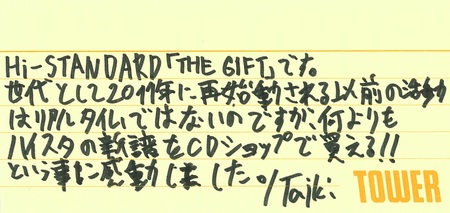 Hi-STANDARD「THE GIFT」です。
世代として2011年に再始動される以前の活動
はリアルタイムではないのですが、何よりも
ハイスタの新譜をCDショップで買える!!
という事に感動しました。/Taiki
TOWER